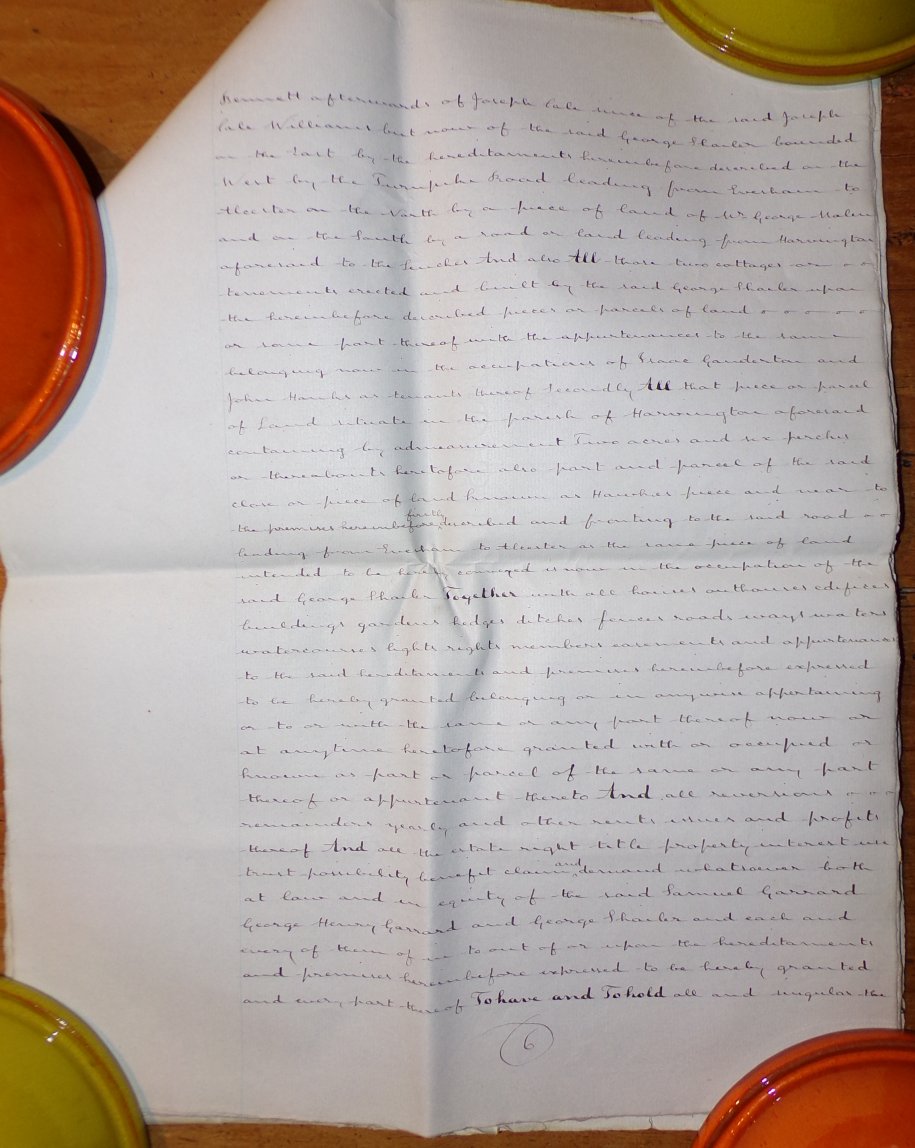 Bennett afterwards of Joseph Cale since of the said Joseph
Cale Williams but now of the said George Shailer bounded
on the East by the hereditaments hereinbefore described on the
West by the Turnpike Road leading from Evesham to
Alcester on the North by a piece of land of Mr George Malin
and on the South by a road or land leading from Harvington
aforesaid to the Lenches And also All those two cottages or
tenements erected and built by the said George Shailer upon
the hereinbefore described pieces or parcels of land
or some part thereof with the appurtenances to the same
belonging now in the occupations of Isaac Ganderton and
John Hawks as tenants thereof Secondly All that piece or parcel
of Land situate in the parish of Harvington aforesaid
containing by admeasurement Two acres and six perches
or thereabouts heretofore also part and parcel of the said
close or piece of land known as Hawkes piece and near to
the premises hereinbefore firstly described and fronting to the said road
leading from Evesham to Alcester as the same piece of land
intended to be hereby conveyed is now in the occupation of the
said George Shailer Together with all houses outhouses edifices
buildings gardens hedges ditches fences roads ways waters
watercourses lights rights members easements and appurtenances
to the said hereditaments and premises hereinbefore expressed
to be hereby granted belonging or in anywise appertaining
or to or with the same or any part thereof now or
at anytime heretofore granted with or occupied or
known as part or parcel of the same or any part
thereof or appurtenant thereto And all reversions
remainders yearly and other rents issues and profits
thereof And all the estate right title property interest use
trust possibility benefit claim and demand whatsoever both
at law and in equity of the said Samuel Garrard
George Henry Garrard and George Shailer and each and
every of them of in to out of or upon the hereditaments
and premises hereinbefore expressed to be hereby granted
and every part thereof To have and To hold all and singular the
6